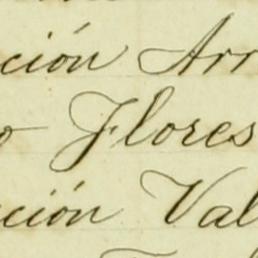 ción Arr
o Flores
ción Val